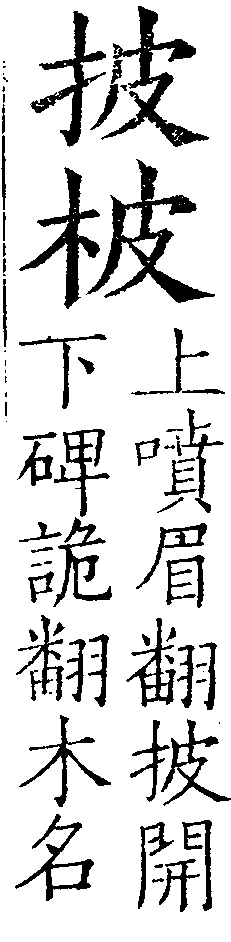 披柀
上噴眉翻披開
下碑詭翻木名